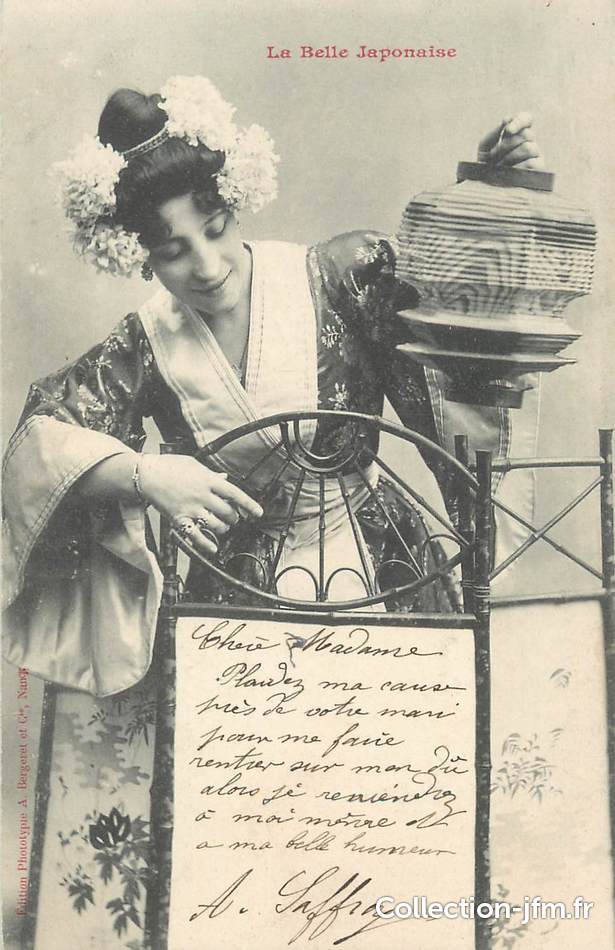 La Belle Japonaise
Chère Madame
Plaidez ma cause
près de votre mari
pour me faire
rentrer sur mon dû
alors je reviendrez
à moi même et
a ma belle humeur
A. Saffray
Edition Phototypie A. Bergeret et Cie, Nancy
Collection-jfm.fr